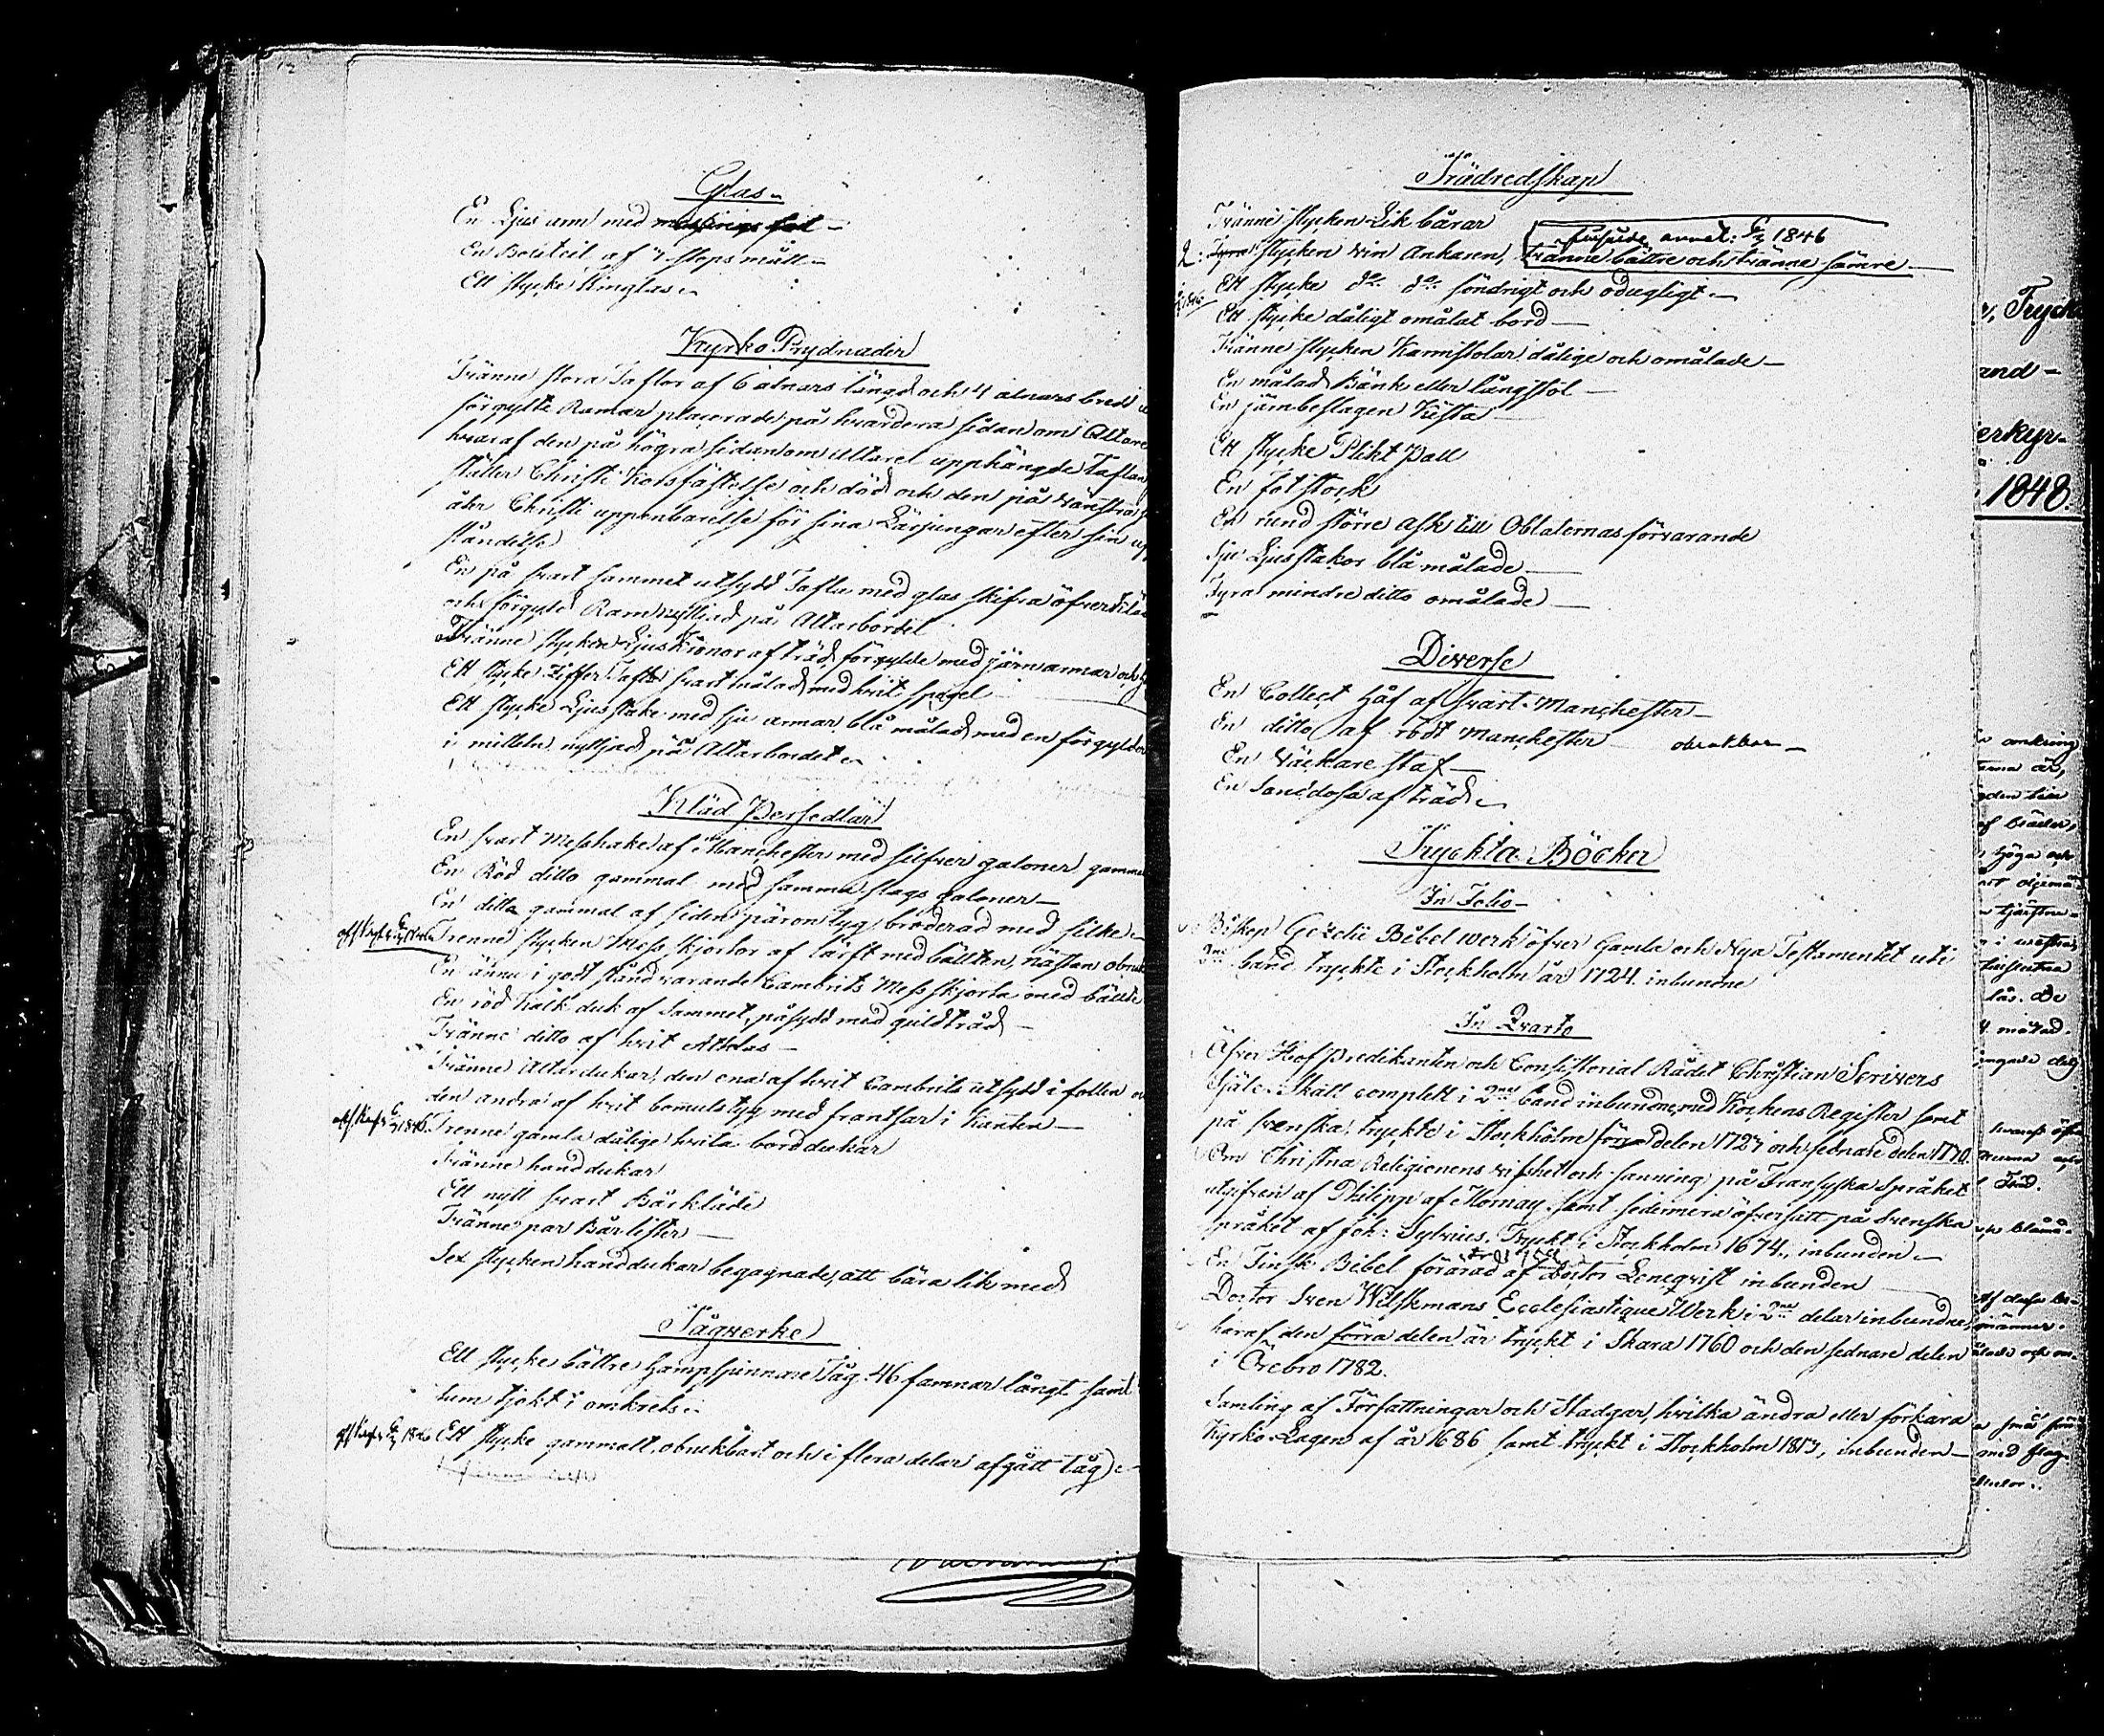 Glas
En Ljus arm med messings fat
En Boteil af 7 stops mått
Ett stycke Ringlas
Kyrko Prydnader
Tvänne stora Taflor af 6 alnars längd och 4 alnars bred
förgylte Ramar placerade på hvardera sidan om Altare
hvaraf den på högra sidan om Altaret upphängde Taflan
ställer Christi Korsfästelse och död och den på vänstra
åter Christi uppenbarelse för sina Lärjungar efter sin up
ståndelse
En på svart sammet utsydd Tafla med glas skifva öfver
och förgyld Ram nyttjad på Altarbordet
Tvänne stycken Ljus Kronor af träd förgylde med järn armar och
Ett stycke Ziffer Tafla svart målad med hvit spegel
Ett stycke Ljusstake med sju armar blå målad med en förgyld
i mitteln nyttjad på Altarbordet
Kläd Persedlar
En svart Messhake af Manchester med silfver galoner gammal
En Röd ditto gammal med samma slags galoner
En ditto gammal af siden päron tyg broderad med silke
Trenne stycken Mess skjortor af lärft med bälten, nästan obruk
En ännu i godt stånd varande Cambrits Mess skjorta med bälte
En röd Kalk duk af Sammet, påsydd med guldtråd
Tvänne ditto af hvit Atlas
Tvänne Altardukar, den ena af hvit Cambrits utsydd i fållen
den andra af hvit bomulstyg med frantsar i Kanten
1846 Trenne gamla dålige hvita borddukar
Tvänne handdukar
Ett nytt svart Bårkläde
Tvänne par Bårlister
Sex stycken handdukar begagnade, att bära lik med
Tågverke
Ett stycke bättre Hampspunnare Tåg 46 famnar långt samt
tum tjokt i omkrets
1846 Ett stycke gammalt obrukbart och i flera delar afgått tåg
Trädredskap
Tvänne stycken Lik bårar
2: Fyra stycken vin Ankaren, tvänne bättre och tvänne sämre
1846
Ett stycke d:o d:o söndrigt och odugligt
Ett stycke dåligt omålat bord
Tvänne stycken Karmstolar dålige och omålade
En målad Bänk eller långstol
En järnbeslagen Kista
Ett stycke Plikt Pall
En fotstock
En rund större ask till Oblaternas förvarande
Sju Ljusstakar blå målade
Fyra mindre ditto omålade
Diverse
En Collect Håf af svart Manchester
En ditto af rödt Manchester obrukbar
En Väckare staf
En Sanddosa af träd
Tryckta Böcker
In Folio
Biskop Gezelii Bibel werk öfver Gamla och Nya Testamentet uti
band tryckte i Stockholm år 1724. inbundne
In Qvarto
Öfver Hof Predikanten och Consistorial Rådet Christian Scrivers
Själe-Skatt complett i 2ne band inbundne, med Kochens Register samt
på svenska, tryckte i Stockholm förra delen 1727 och sednare delen 1770.
Om Christna Religionens visshet och sanning på Fransyska Språket
utgifven af Philipp af Mornay samt sedermera öfversatt på Svenska
Språket af Joh: Sylvius. Tryckt i Stockholm 1674, inbunden
En Finsk Bibel förärad af Doctor Leneqvist inbunden
Doctor Sven Wilskmans Ecclesiastique Werk i 2ne delar inbundne,
haraf den förra delen är tryckt i Skara 1760 och den sednare delen
i Örebro 1782.
Samling af Författningar och Stadgar, hvilka ändra eller förklara
Kyrko-Lagen af år 1686 samt tryckt i Stockholm 1813, inbunden
Tryck
and
erkyr-
1848.
omkring